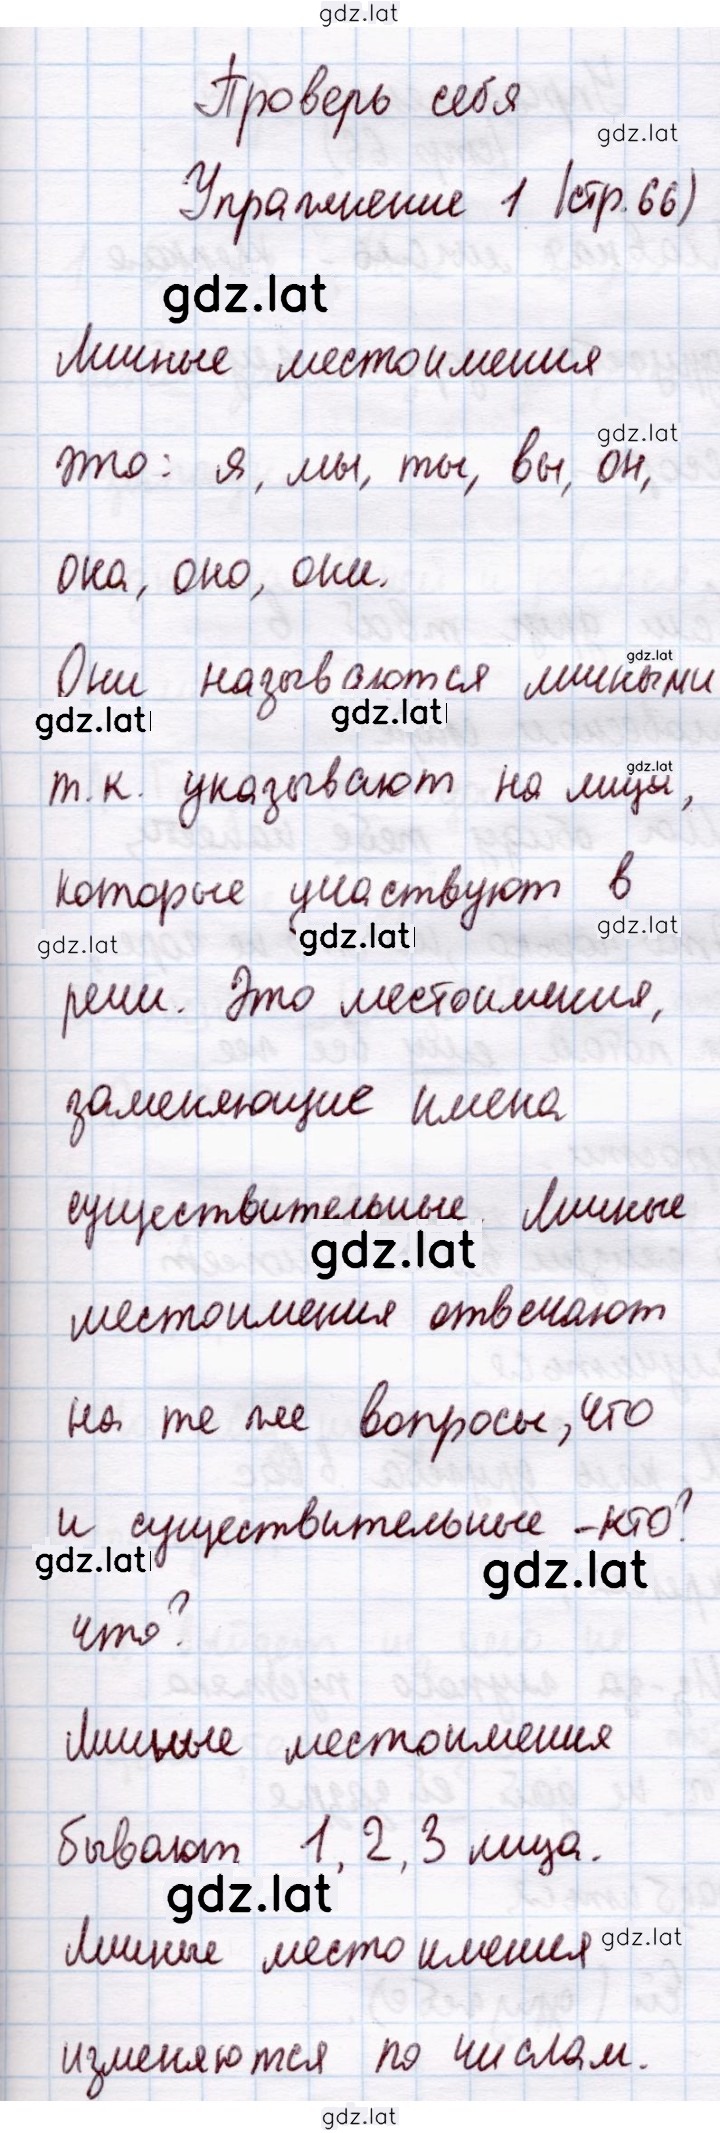 gdz.lat
Проверь себя
gdz.lat
Упражнение 1 (стр. 66)
gdz.lat
Личные местоимения
gdz.lat
это: я, мы, ты, вы, он,
она, оно, они.
gdz.lat
Они называются личными
gdz.lat gdz.lat
gdz.lat
т.к. указывают на лица,
которые участвуют в
gdz.lat gdz.lat gdz.lat
речи. Это местоимения,
заменяющие имена
существительные. Личные
gdz.lat
местоимения отвечают
на те же вопросы, что
и существительные - кто?
gdz.lat gdz.lat
что?
Личные местоимения
бывают 1, 2, 3 лица.
gdz.lat
Личные местоимения
gdz.lat
изменяются по числам.
gdz.lat